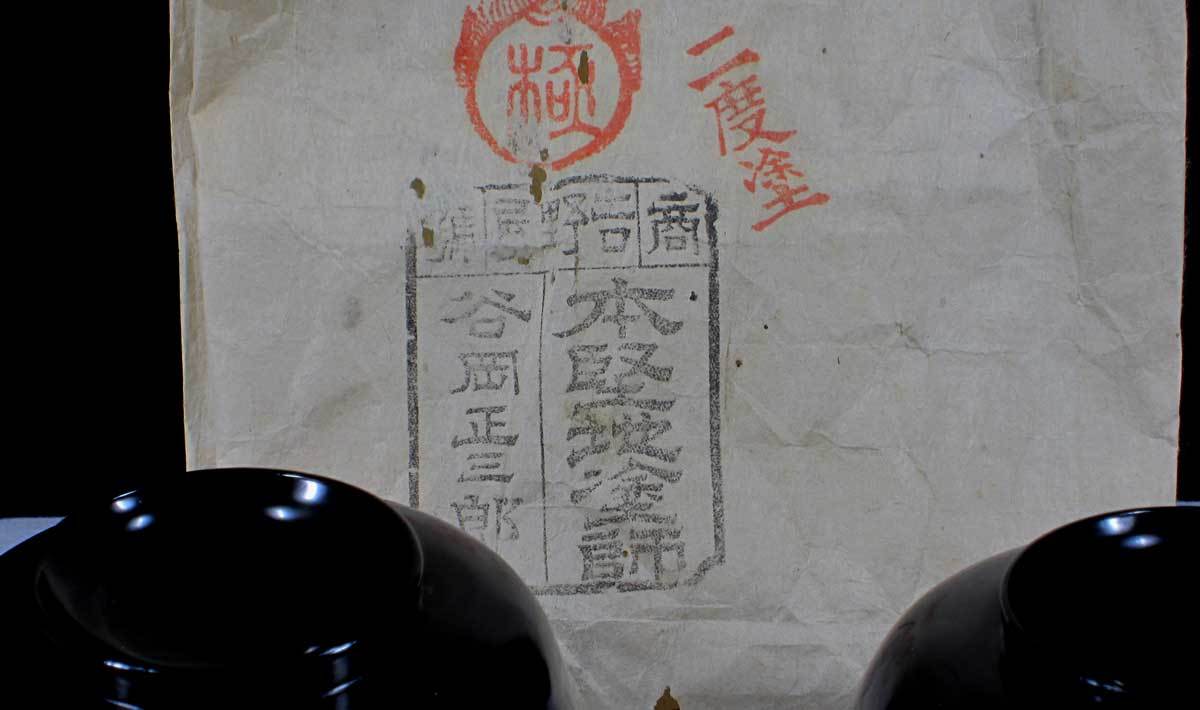 極
二度塗
商吉野屋號
本堅地塗師
谷岡正三郎